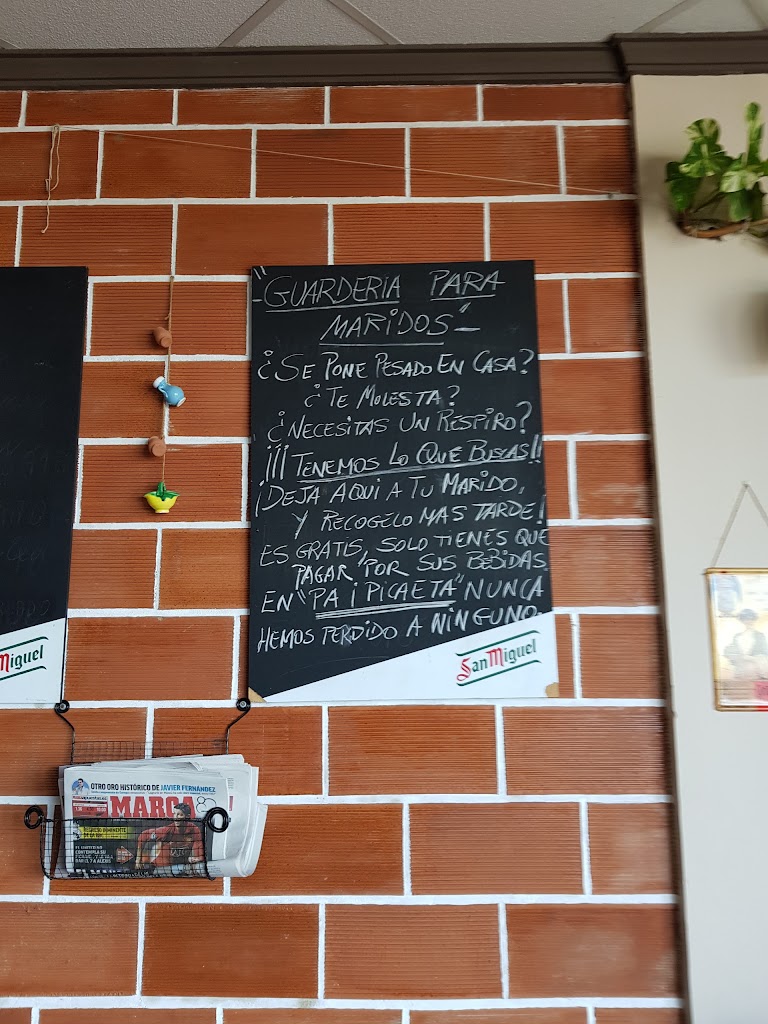 "GUARDERIA PARA
MARIDOS"
¿SE PONE PESADO EN CASA?
¿TE MOLESTA?
¿NECESITAS UN RESPIRO?
¡¡¡TENEMOS LO QUE BUSCAS!!
¡DEJA AQUI A TU MARIDO,
Y RECOGELO MAS TARDE!
ES GRATIS, SOLO TIENES QUE
PAGAR POR SUS BEBIDAS.
EN "PA I PICAETA" NUNCA
HEMOS PERDIDO A NINGUNO.
San Miguel
Miguel
OTRO ORO HISTÓRICO DE JAVIER FERNÁNDEZ
MARCA